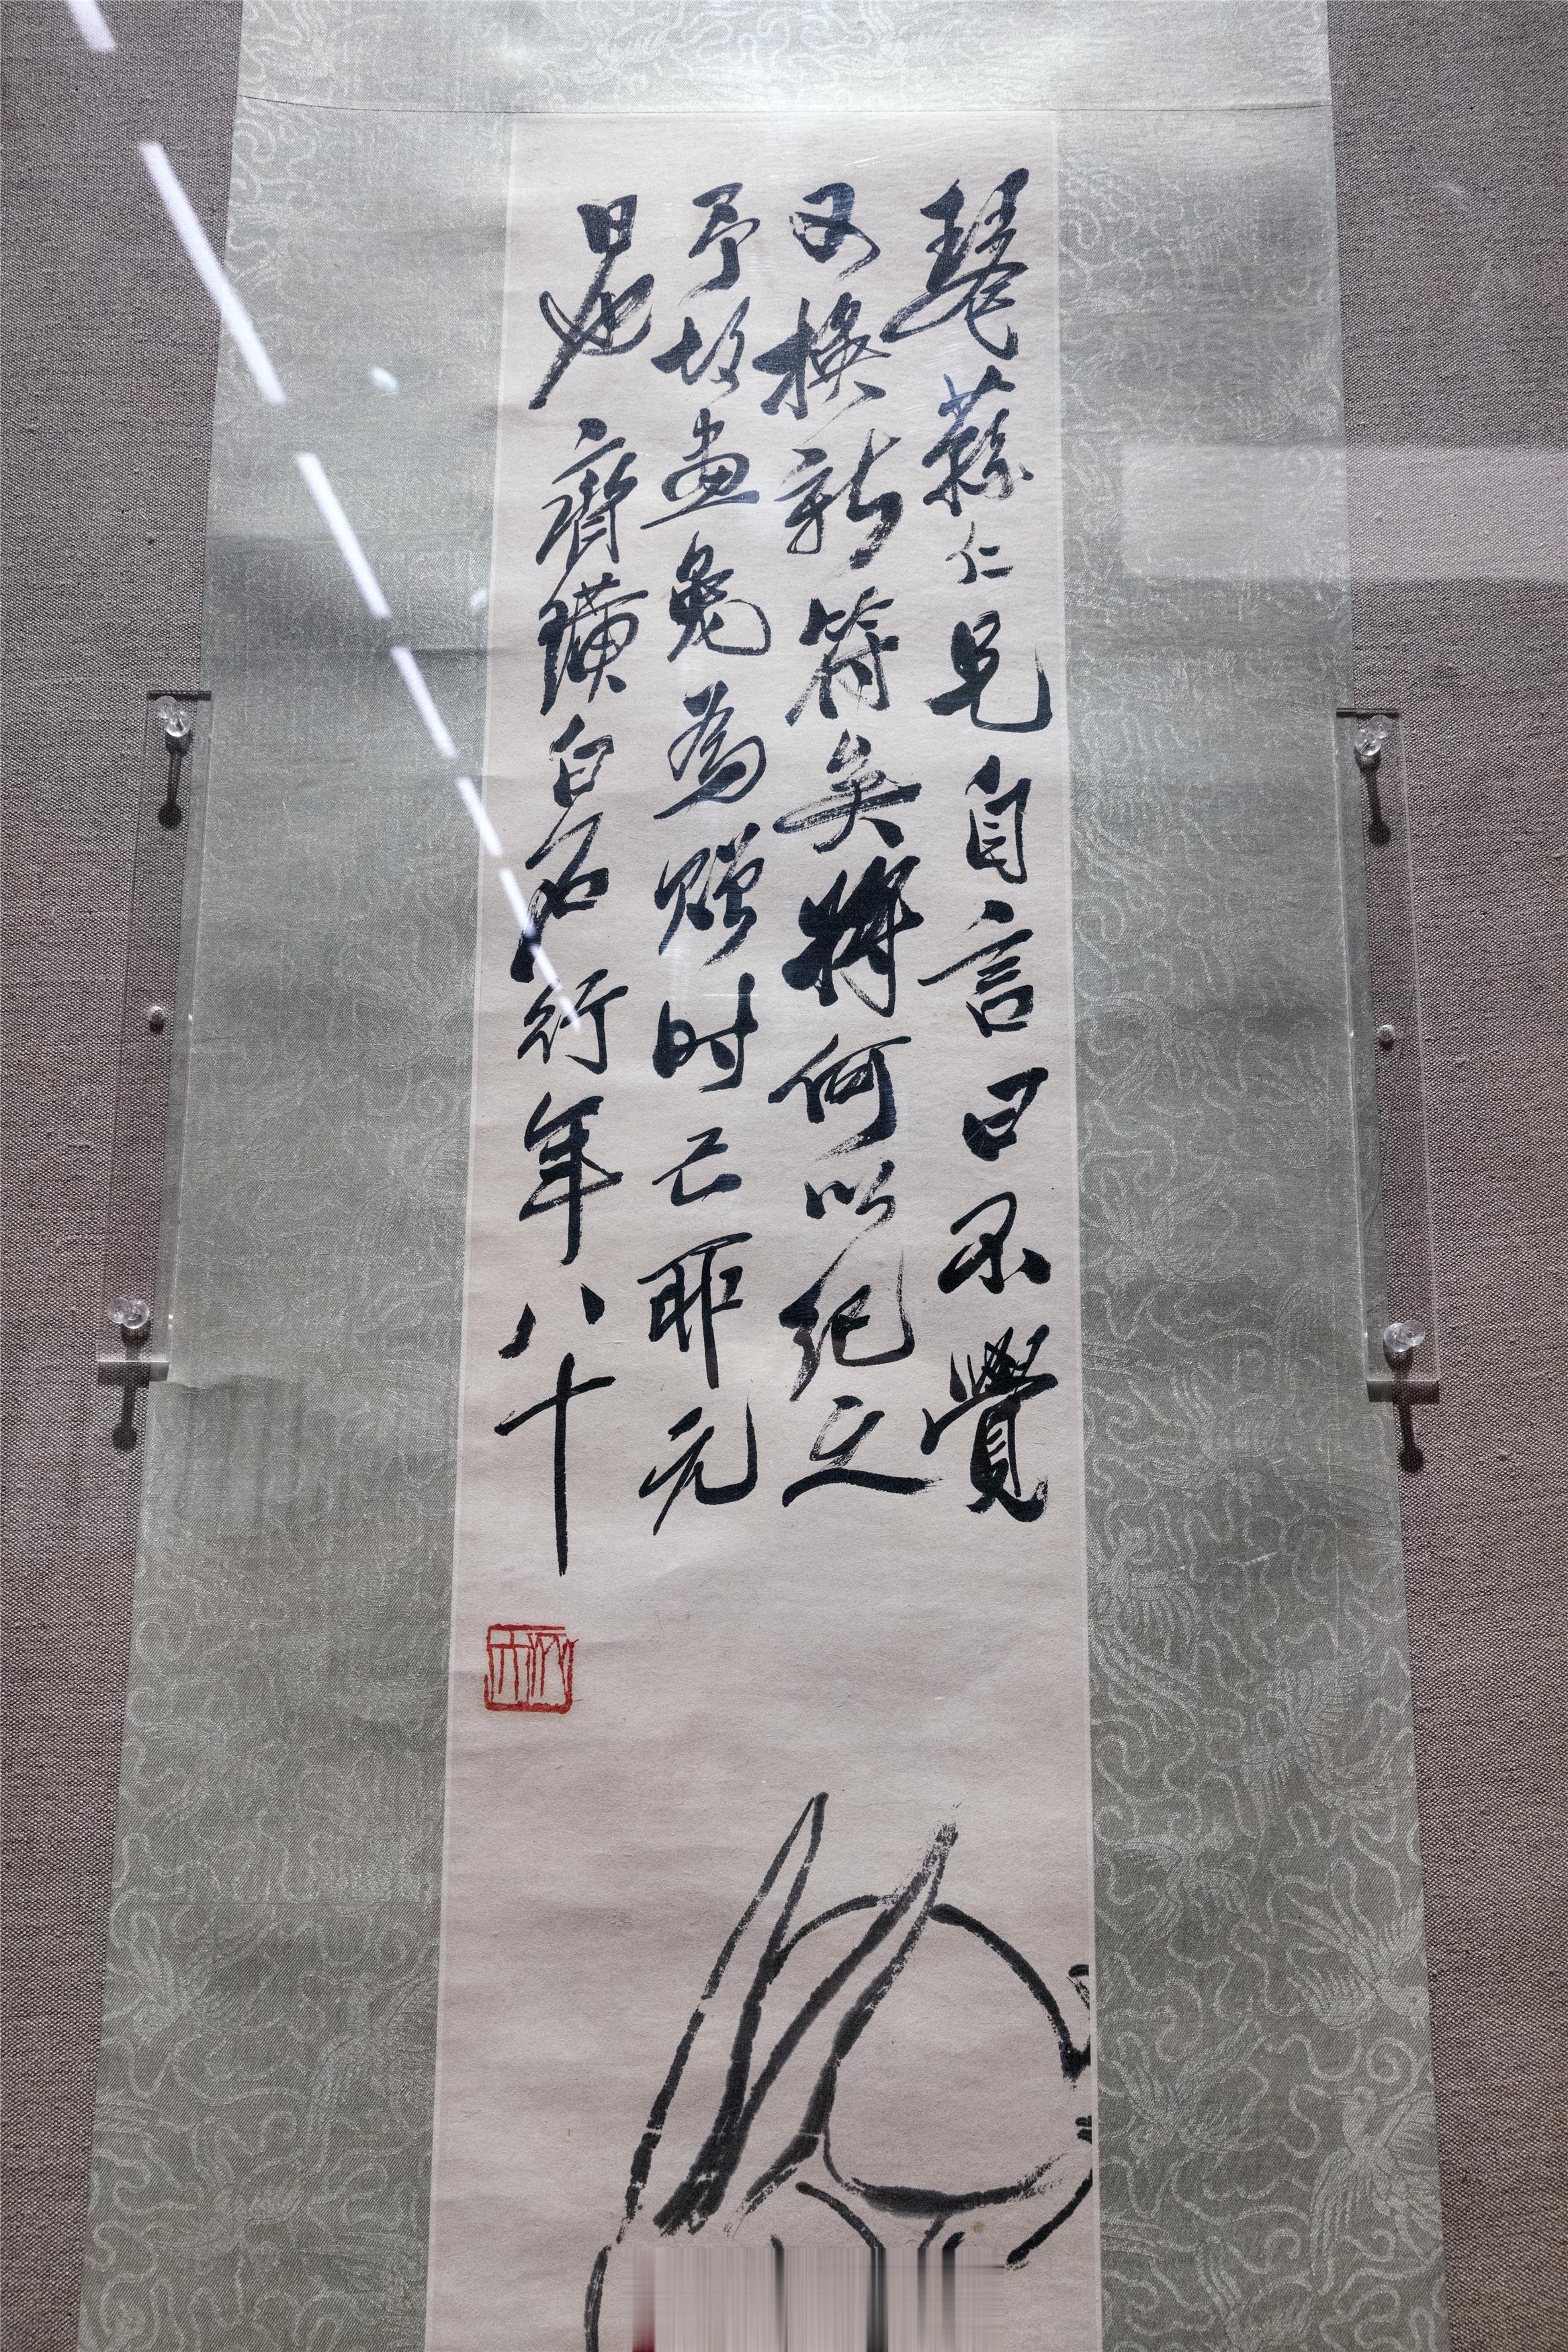 琴蓀仁兄自言曰不覺
又換新符矣將何以紀之
予故畫兔為贈時己卯元
日也齊璜白石行年八十